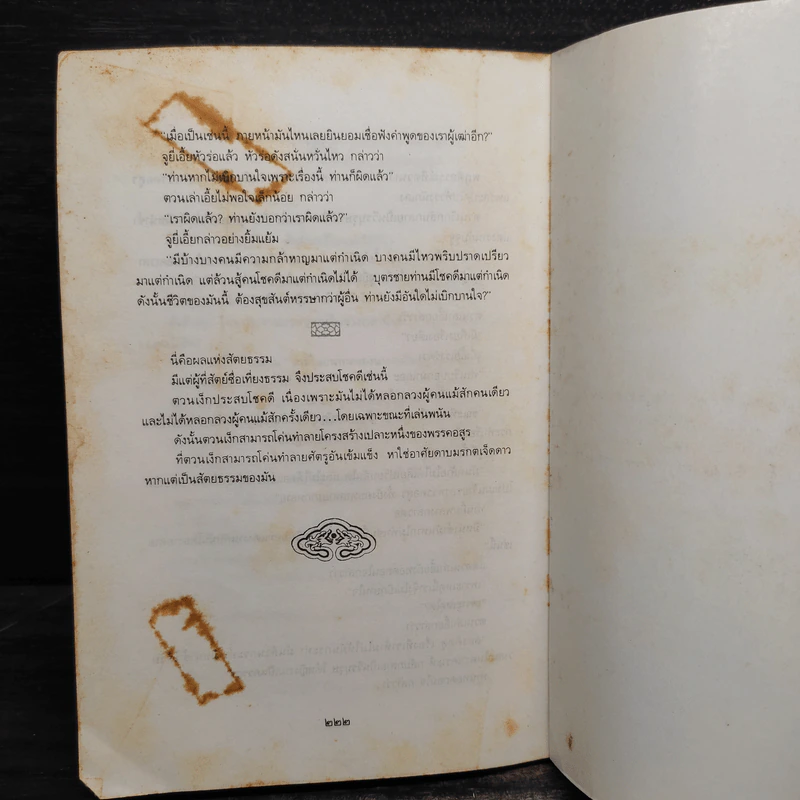 "เมื่อเป็นเช่นนี้ ภายหน้ามันไหนเลยยินยอมเชื่อฟังคำพูดของเราผู้เฒ่าอีก?"
จูยี่เอี้ยหัวร่อแล้ว หัวร่อดังสนั่นหวั่นไหว กล่าวว่า
"ท่านหากไม่เบิกบานใจเพราะเรื่องนี้ ท่านก็ผิดแล้ว"
ตวนเล่าเอี้ยไม่พอใจเล็กน้อย กล่าวว่า
"เราผิดแล้ว? ท่านยังบอกว่าเราผิดแล้ว?"
จูยี่เอี้ยกล่าวอย่างยิ้มแย้ม
"มีบ้างบางคนมีความกล้าหาญมาแต่กำเนิด บางคนมีไหวพริบปราดเปรียว
มาแต่กำเนิด แต่ล้วนสู้คนโชคดีมาแต่กำเนิดไม่ได้ บุตรชายท่านมีโชคดีมาแต่กำเนิด
ดังนั้นชีวิตของมันนี้ ต้องสุขสันต์หรรษากว่าผู้อื่น ท่านยังมีอันใดไม่เบิกบานใจ?"
นี่คือผลแห่งสัตยธรรม
มีแต่ผู้ที่สัตย์ซื่อเที่ยงธรรม จึงประสบโชคดีเช่นนี้
ตวนเง็กประสบโชคดี เนื่องเพราะมันไม่ได้หลอกลวงผู้คนแม้สักคนเดียว
และไม่ได้หลอกลวงผู้คนแม้สักครั้งเดียว...โดยเฉพาะขณะที่เล่นพนัน
ดังนั้นตวนเง็กสามารถโค่นทำลายโครงสร้างเปลาะหนึ่งของพรรคอสูร
ที่ตวนเง็กสามารถโค่นทำลายศัตรูอันเข้มแข็ง หาใช่อาศัยดาบมรกตเจ็ดดาว
หากแต่เป็นสัตยธรรมของมัน
๒๒๒